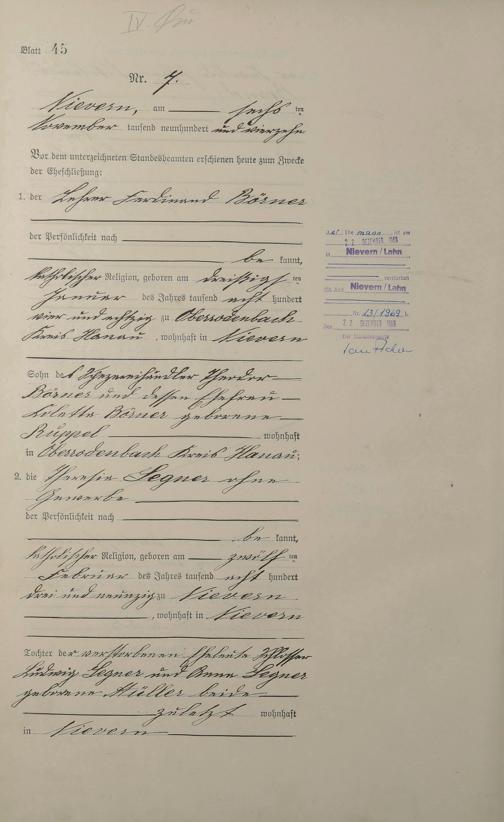 Blatt 45
Nr. 7.
Nievern, am sechs ten
November tausend neunhundert und vierzehn
Vor dem unterzeichneten Standesbeamten erschienen heute zum Zwecke
der Eheschließung:
1. der Lehrer Ferdinand Börner
der Persönlichkeit nach
be kannt,
katholischer Religion, geboren am dreißigs ten
Januar des Jahres tausend acht hundert
vier und achtzig zu Oberrodenbach
Kreis Hanau, wohnhaft in Nievern
Sohn des Spezereihändler Theodor
Börner und dessen Ehefrau
Börner geborene
Ruppel wohnhaft
in Oberrodenbach Kreis Hanau;
2. die Theresia Segner ohne
Gewerbe
der Persönlichkeit nach
be kannt,
katholischer Religion, geboren am zwölf ten
Februar des Jahres tausend acht hundert
drei und neunzig zu Nievern
, wohnhaft in Nievern
Tochter der verstorbenen Eheleute Schlosser
Ludwig Segner und Anna Segner
geborene Müller beide
zuletzt wohnhaft
in Nievern
22. DEZEMBER 1969
in Nievern / Lahn
Nievern / Lahn
Nr. 13/1969
22. DEZEMBER 1969